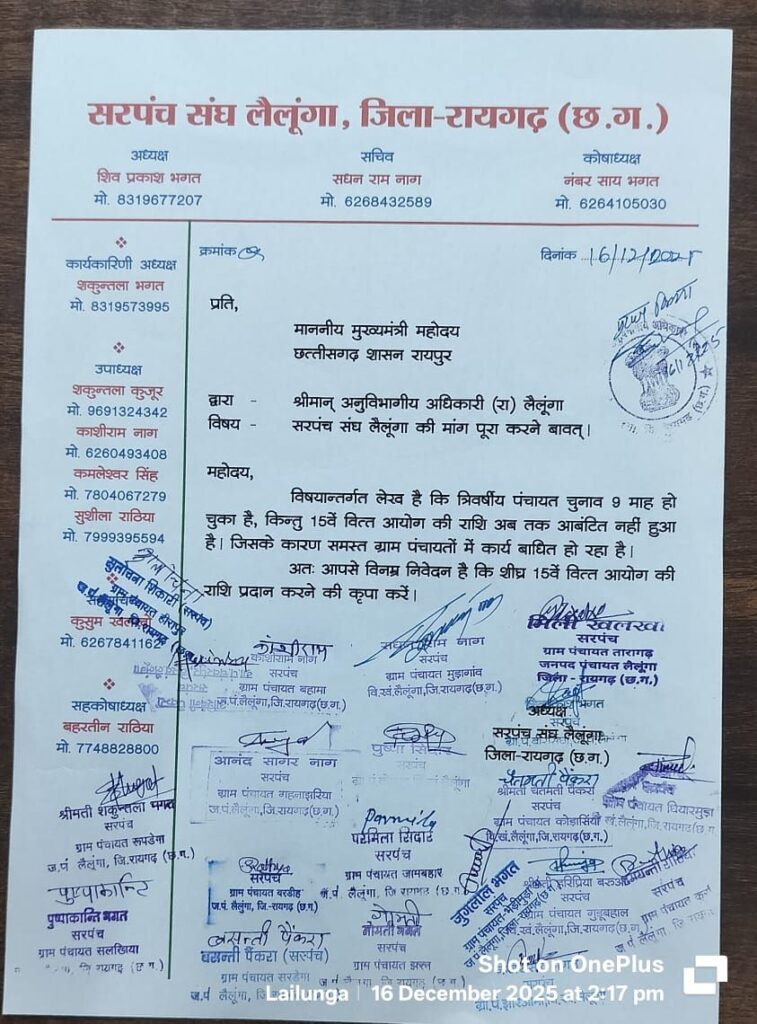 सरपंच संघ लैलूंगा, जिला-रायगढ़ (छ.ग.)
अध्यक्ष
शिव प्रकाश भगत
मो. 8319677207
सचिव
सधन राम नाग
मो. 6268432589
कोषाध्यक्ष
नंबर साय भगत
मो. 6264105030
कार्यकारिणी अध्यक्ष
शकुन्तला भगत
मो. 8319573995
उपाध्यक्ष
शकुन्तला कुजूर
मो. 9691324342
काशीराम नाग
मो. 6260493408
कमलेश्वर सिंह
मो. 7804067279
सुशीला राठिया
मो. 7999395594
कुसुम
मो. 6267841162
सहकोषाध्यक्ष
बहरतीन राठिया
मो. 7748828800
क्रमांक
दिनांक 16/12/2025
प्रति,
माननीय मुख्यमंत्री महोदय
छत्तीसगढ़ शासन रायपुर
द्वारा - श्रीमान् अनुविभागीय अधिकारी (रा) लैलूंगा
विषय - सरपंच संघ लैलूंगा की मांग पूरा करने बावत्।
महोदय,
विषयान्तर्गत लेख है कि त्रिवर्षीय पंचायत चुनाव 9 माह हो
चुका है, किन्तु 15वें वित्त आयोग की राशि अब तक आबंटित नहीं हुआ
है। जिसके कारण समस्त ग्राम पंचायतों में कार्य बाधित हो रहा है।
अतः आपसे विनम्र निवेदन है कि शीघ्र 15वें वित्त आयोग की
राशि प्रदान करने की कृपा करें।
सुलोचना सिकारी (सरपंच)
ग्राम पंचायत
काशीराम
काशीराम नाग
सरपंच
ग्राम पंचायत बहामा
ज.पं.लैलूंगा,जि.रायगढ़(छ.ग.)
राम नाग
सरपंच
ग्राम पंचायत मुडागांव
वि.खं.लैलूंगा,जि.रायगढ़(छ.ग.)
मिली खलखो
सरपंच
ग्राम पंचायत तारागढ़
जनपद पंचायत लैलूंगा
जिला - रायगढ़ (छ.ग.)
अध्यक्ष
सरपंच संघ लैलूंगा
जिला-रायगढ़ (छ.ग.)
आनंद सागर नाग
सरपंच
ग्राम पंचायत गहनाझरिया
ज.पं.लैलूंगा,जि.रायगढ़(छ.ग.)
पुष्पा सिदार
सरपंच
चैतमती पैंकरा
श्रीमती चैतमती पैंकरा
सरपंच
ग्राम पंचायत
वि.खं.लैलूंगा,जि.रायगढ़(छ.ग.)
सरपंच
ग्राम पंचायत
श्रीमती शकुन्तला भगत
सरपंच
ग्राम पंचायत रूपडेगा
ज.पं लैलूंगा, जि.रायगढ़ (छ.ग.)
Parmila
परमिला सिदार
सरपंच
ग्राम पंचायत जामबहार
सरपंच
ग्राम पंचायत बरडीह
ज.पं. लैलूंगा, जि.-रायगढ़ (छ.ग.)
जुगलाल भगत
सरपंच
हरिप्रिया
सरपंच
ग्राम पंचायत गुडूबहाल
सरपंच
ग्राम पंचायत
पुष्पाकान्ति
पुष्पाकान्ति भगत
सरपंच
ग्राम पंचायत सलखिया
बसन्ती पैंकरा
बसन्ती पैंकरा (सरपंच)
ग्राम पंचायत सरडेगा
गोमती
गोमती भगत
सरपंच
ग्राम पंचायत झरन
Shot on OnePlus
Lailunga | 16 December 2025 at 2:17 pm